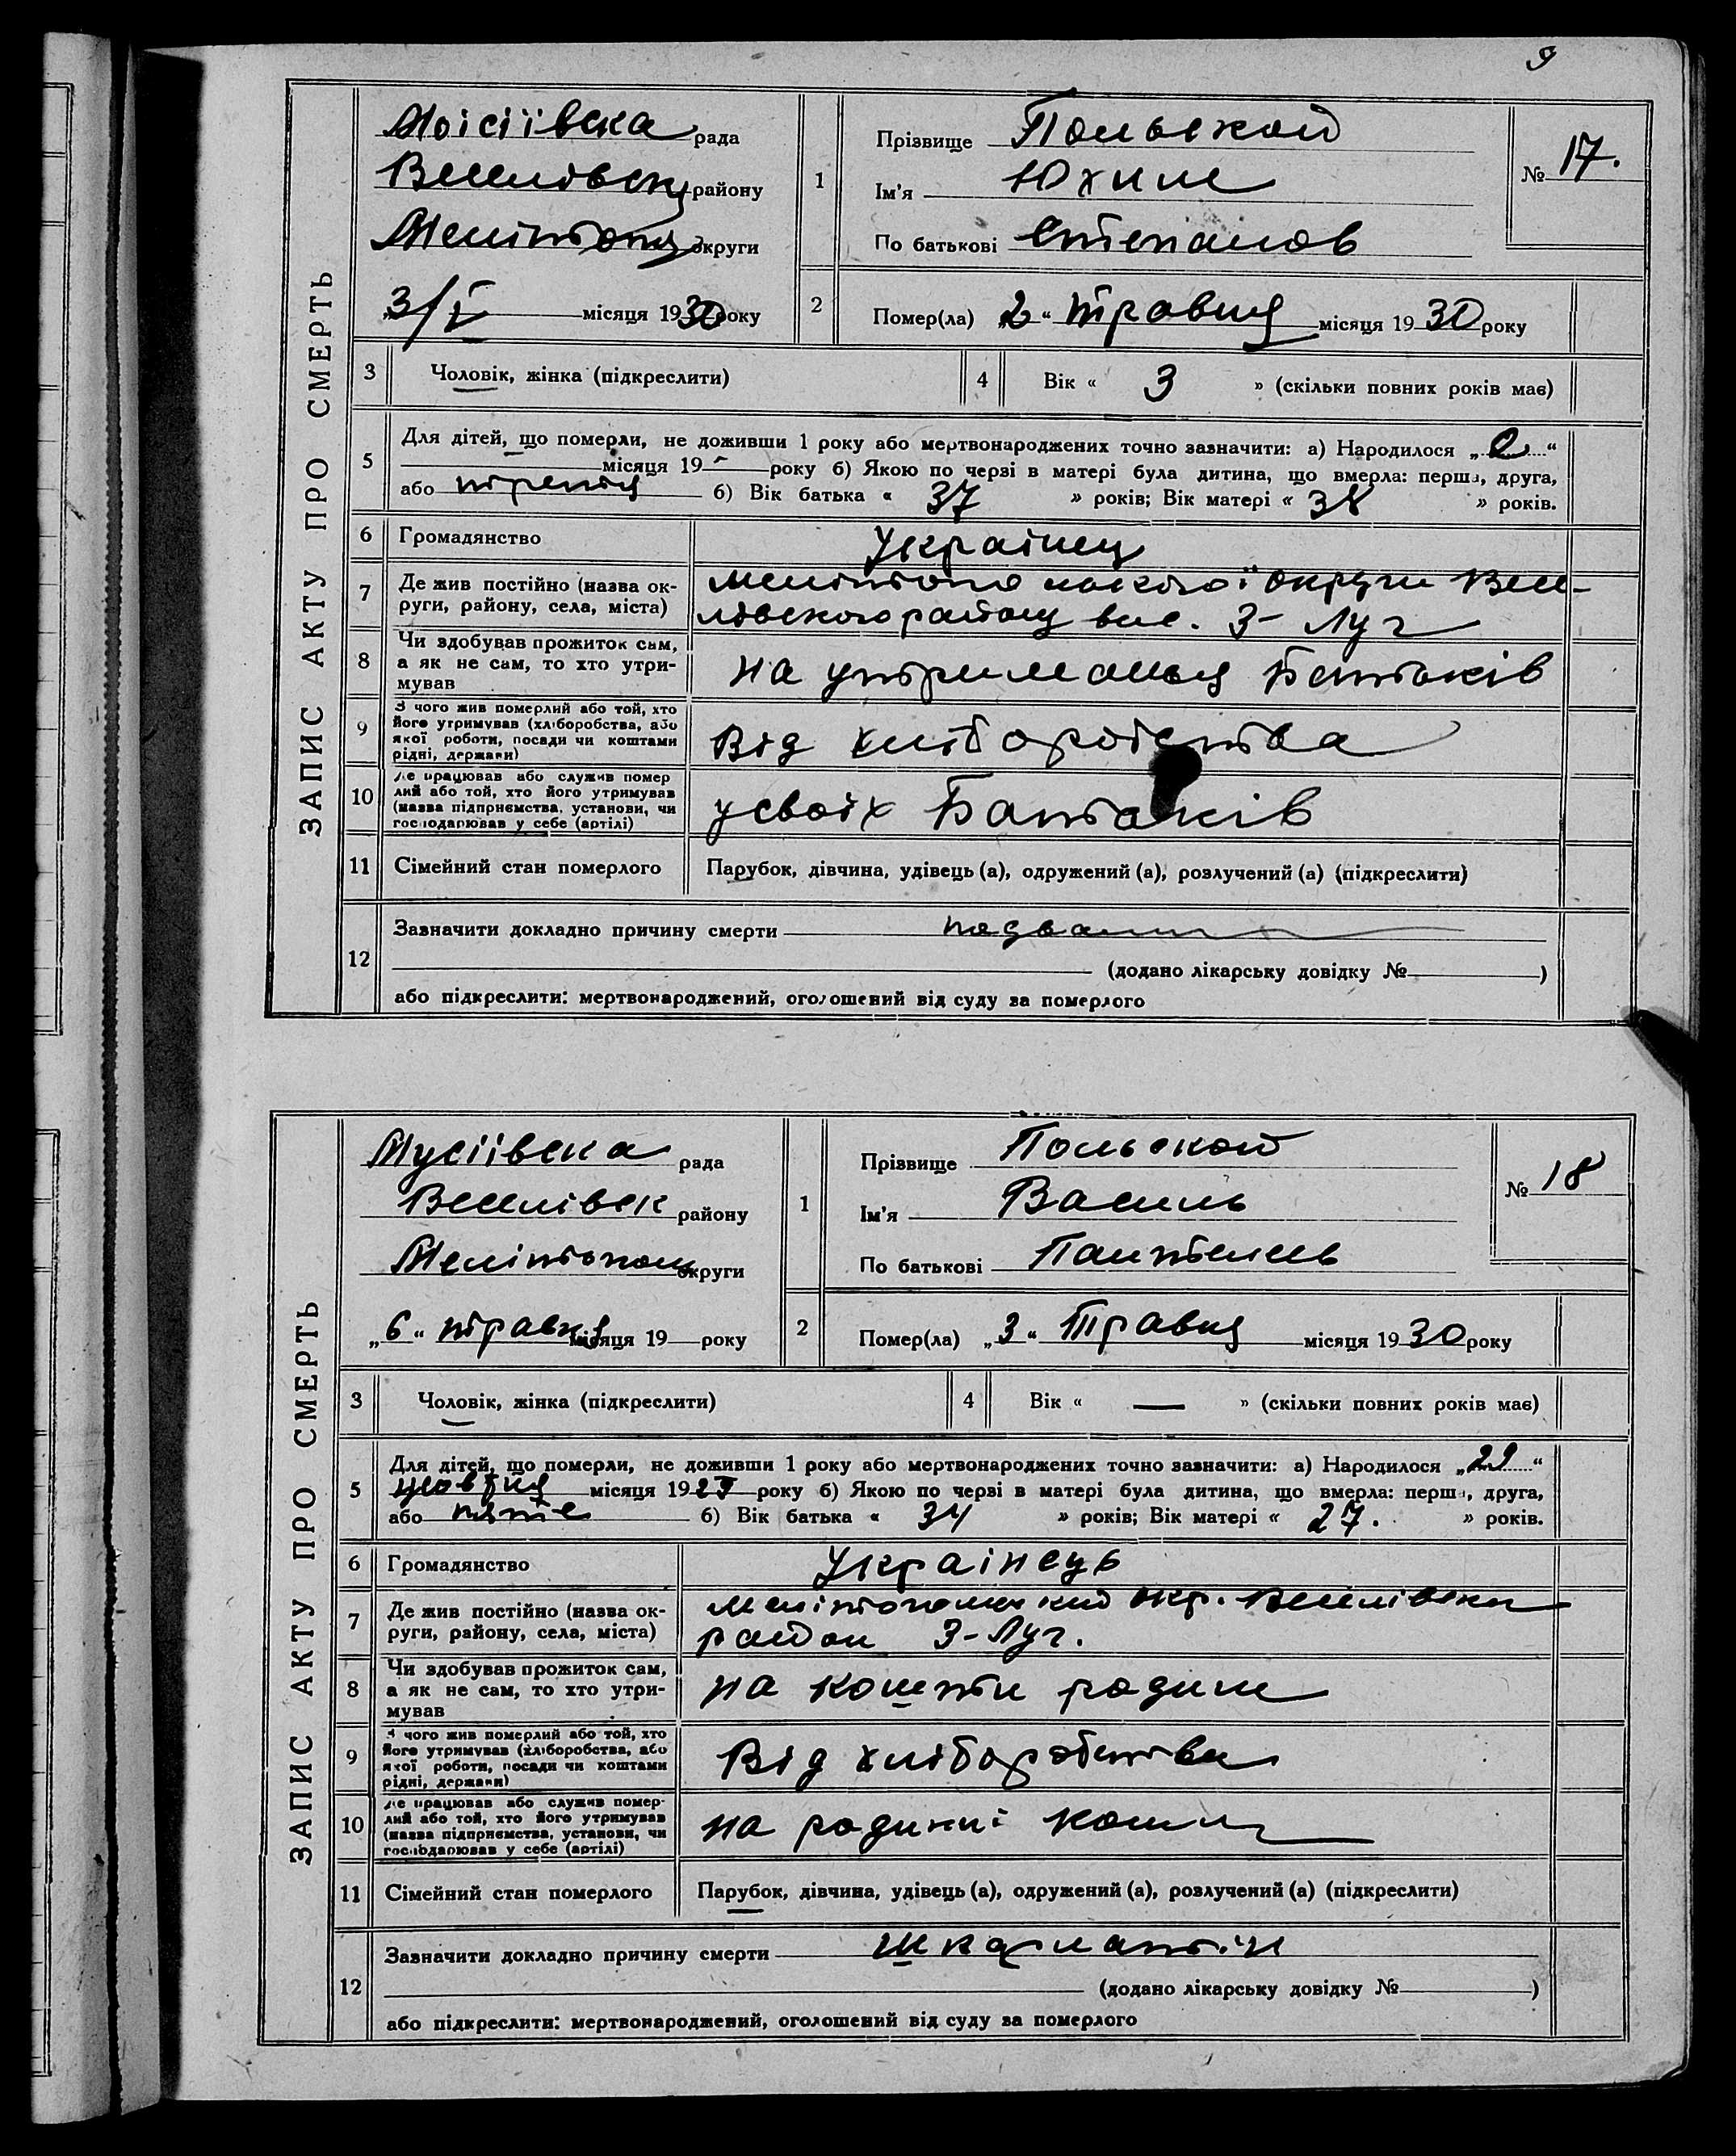 9
ЗАПИС АКТУ ПРО СМЕРТЬ
Моісіївска рада
Веселівськ району
Меліптоп округи
3/V місяця 1930 року
1
Прізвище Польской
Ім'я Юхим
По батькові Степанов
№ 17.
2
Помер(ла) „2“ травня місяця 1930 року
3 Чоловік, жінка (підкреслити)
4 Вік « 3 » (скільки повних років має)
5
Для дітей, що померли, не доживши 1 року або мертвонароджених точно зазначити: а) Народилося „ “
місяця 19 року б) Якою по черзі в матері була дитина, що вмерла: перша, друга,
або третя б) Вік батька « 37 » років; Вік матері « 38 » років.
6 Громадянство Украінец
7 Де жив постійно (назва ок-
руги, району, села, міста)
округи Весе-
лівского району вис. 3- Луг
8 Чи здобував прожиток сам,
а як не сам, то хто утри-
мував
на утриманья Батьків
9 З чого жив померлий або той, хто
його утримував (хліборобства, або
якої роботи, посади чи коштами
рідні, держави)
Від хліборобства
10 Де працював або служив помер
лий або той, хто його утримував
(назва підприємства, установи, чи
господарював у себе (артілі)
у своіх Батьків
11 Сімейний стан померлого Парубок, дівчина, удівець (а), одружений (а), розлучений (а) (підкреслити)
12
Зазначити докладно причину смерти
(додано лікарську довідку № )
або підкреслити: мертвонароджений, оголошений від суду за померлого
ЗАПИС АКТУ ПРО СМЕРТЬ
Мусіівска рада
Веселівск району
Меліптопол округи
„6“ травня місяця 19 року
1
Прізвище Польской
Ім'я Василь
По батькові Пантелеев
№ 18
2
Помер(ла) „3“ Травня місяця 1930 року
3 Чоловік, жінка (підкреслити)
4 Вік « — » (скільки повних років має)
5
Для дітей, що померли, не доживши 1 року або мертвонароджених точно зазначити: а) Народилося „29“
жовтня місяця 1929 року б) Якою по черзі в матері була дитина, що вмерла: перша, друга,
або пяте б) Вік батька « 34 » років; Вік матері « 27. » років.
6 Громадянство Украінець
7 Де жив постійно (назва ок-
руги, району, села, міста)
окр. Веселівски
район 3-Луг.
8 Чи здобував прожиток сам,
а як не сам, то хто утри-
мував
на кошти родини
9 З чого жив померлий або той, хто
його утримував (хліборобства, або
якої роботи, посади чи коштами
рідні, держави)
Від хліборобства
10 Де працював або служив помер-
лий або той, хто його утримував
(назва підприємства, установи, чи
господарював у себе (артілі)
на родинні кошти
11 Сімейний стан померлого Парубок, дівчина, удівець (а), одружений (а), розлучений (а) (підкреслити)
12
Зазначити докладно причину смерти шкарлатін
(додано лікарську довідку № )
або підкреслити: мертвонароджений, оголошений від суду за померлого